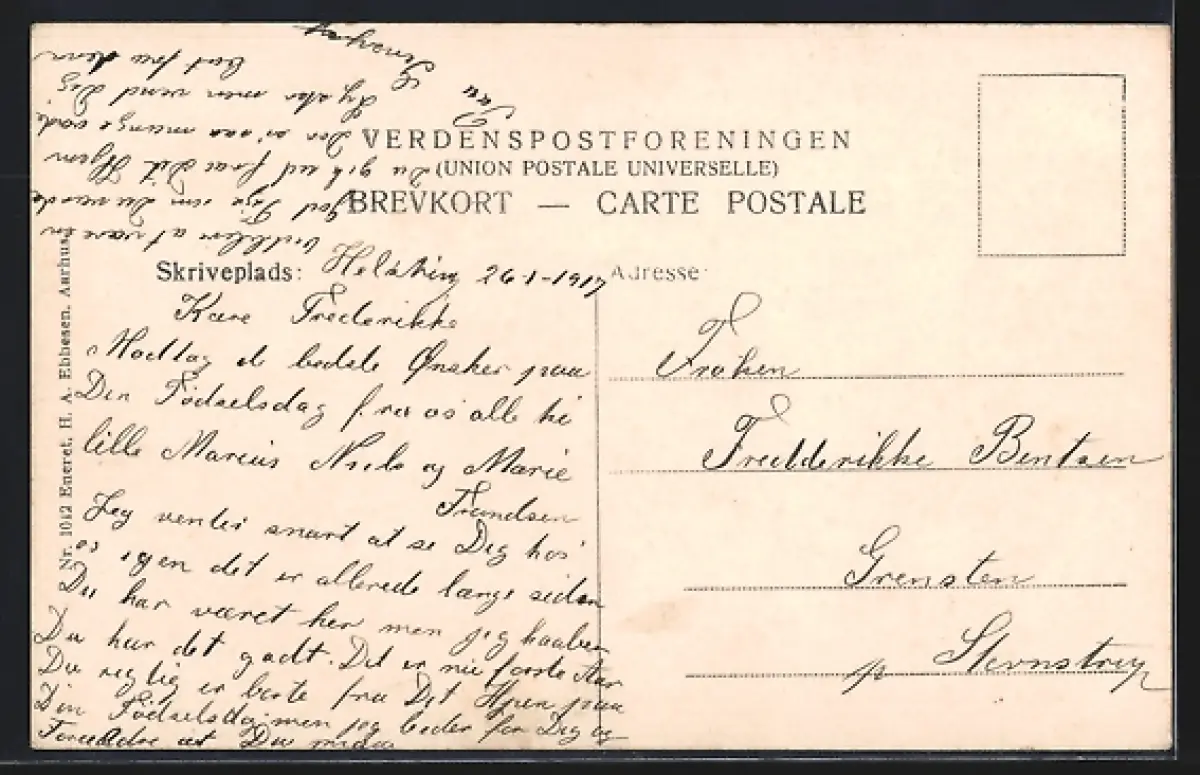 VERDENSPOSTFORENINGEN
(UNION POSTALE UNIVERSELLE)
BREVKORT — CARTE POSTALE
Skriveplads: 26-1-1917
Adresse:
Kære Frederikke
Modtag de bedste Ønsker paa
Din Fødselsdag fra os alle
lille Marius Niels og Marie
Frandsen
Jeg venter snart at se Dig hos
os igen det er allerede længe siden
Du har været her men jeg haaber
Du har det godt. Det er nu første Aar
Du rigtig er borte fra Dit Hjem paa
Din Fødselsdag men jeg beder for Dig og
at Du
at være en
god Pige som Du var da
Du gik ud fra Dit Hjem
Der er saa mange onde
men vend Dig
bort fra dem
Frøken
Fredderikke Bentsen
Grensten
p Stevnstrup
Nr. 1042 Eneret. H. A. Ebbesen. Aarhus.